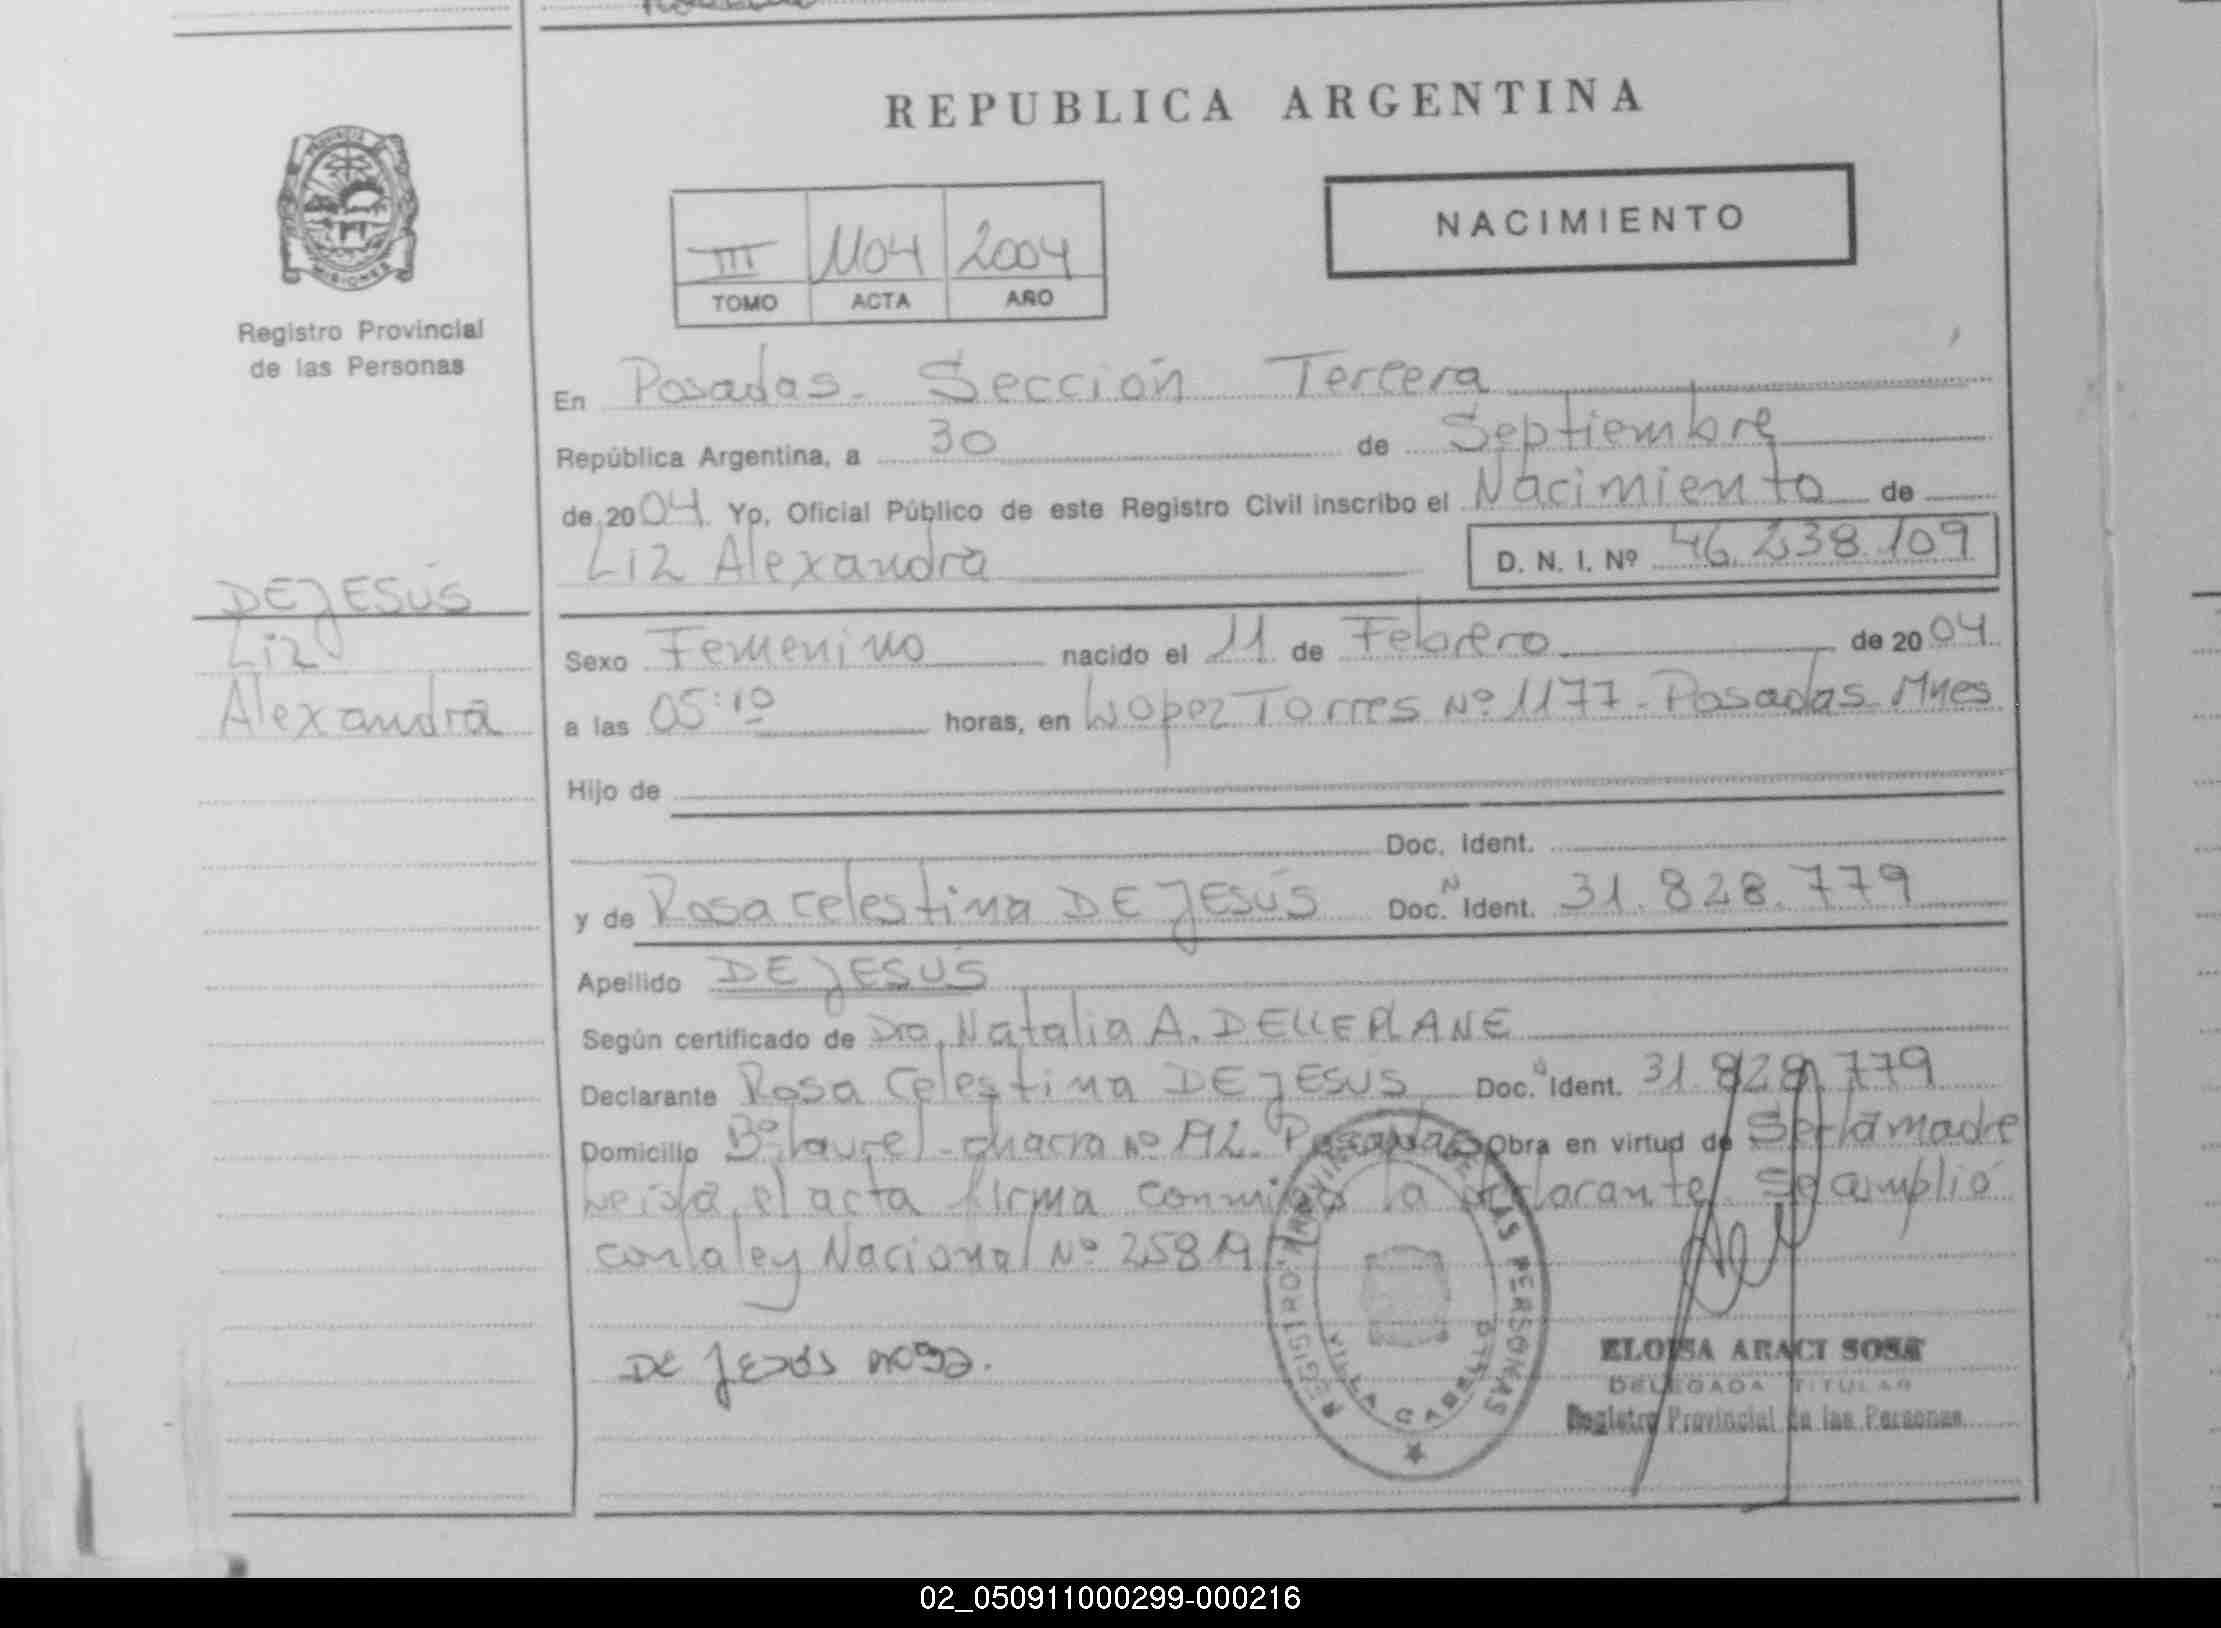 REPUBLICA ARGENTINA
PROVINCIA DE
MISIONES
Registro Provincial
de las Personas
NACIMIENTO
III 1104 2004
TOMO ACTA AÑO
En Posadas. Sección Tercera
República Argentina, a 30 de Septiembre
de 2004. Yo, Oficial Público de este Registro Civil inscribo el Nacimiento de
Liz Alexandra D. N. I. Nº 46.238.109
DE JESÚS
Liz
Alexandra
Sexo Femenino nacido el 11 de Febrero de 2004.
a las 05:10 horas, en Lopez Torres Nº 1177 - Posadas. Mnes
Hijo de
Doc. Ident.
y de Rosa Celestina DE JESÚS Doc. N Ident. 31.828.779
Apellido DE JESÚS
Según certificado de Dra. Natalia A. DELLEPIANE
Declarante Rosa Celestina DE JESUS Doc. Ident. 31.828.779
Domicilio Bº Laurel - chacra Nº 192. Posadas Obra en virtud de Ser la madre
Leída el acta firma conmigo la declarante. Se amplió
con la ley Nacional Nº 25819
DE JESÚS ROSA.
REGISTRO PROVINCIAL DE LAS PERSONAS
VILLA CABELLO
ELOISA ARACI SOSA
DELEGADA TITULAR
Registro Provincial de las Personas
02_050911000299-000216